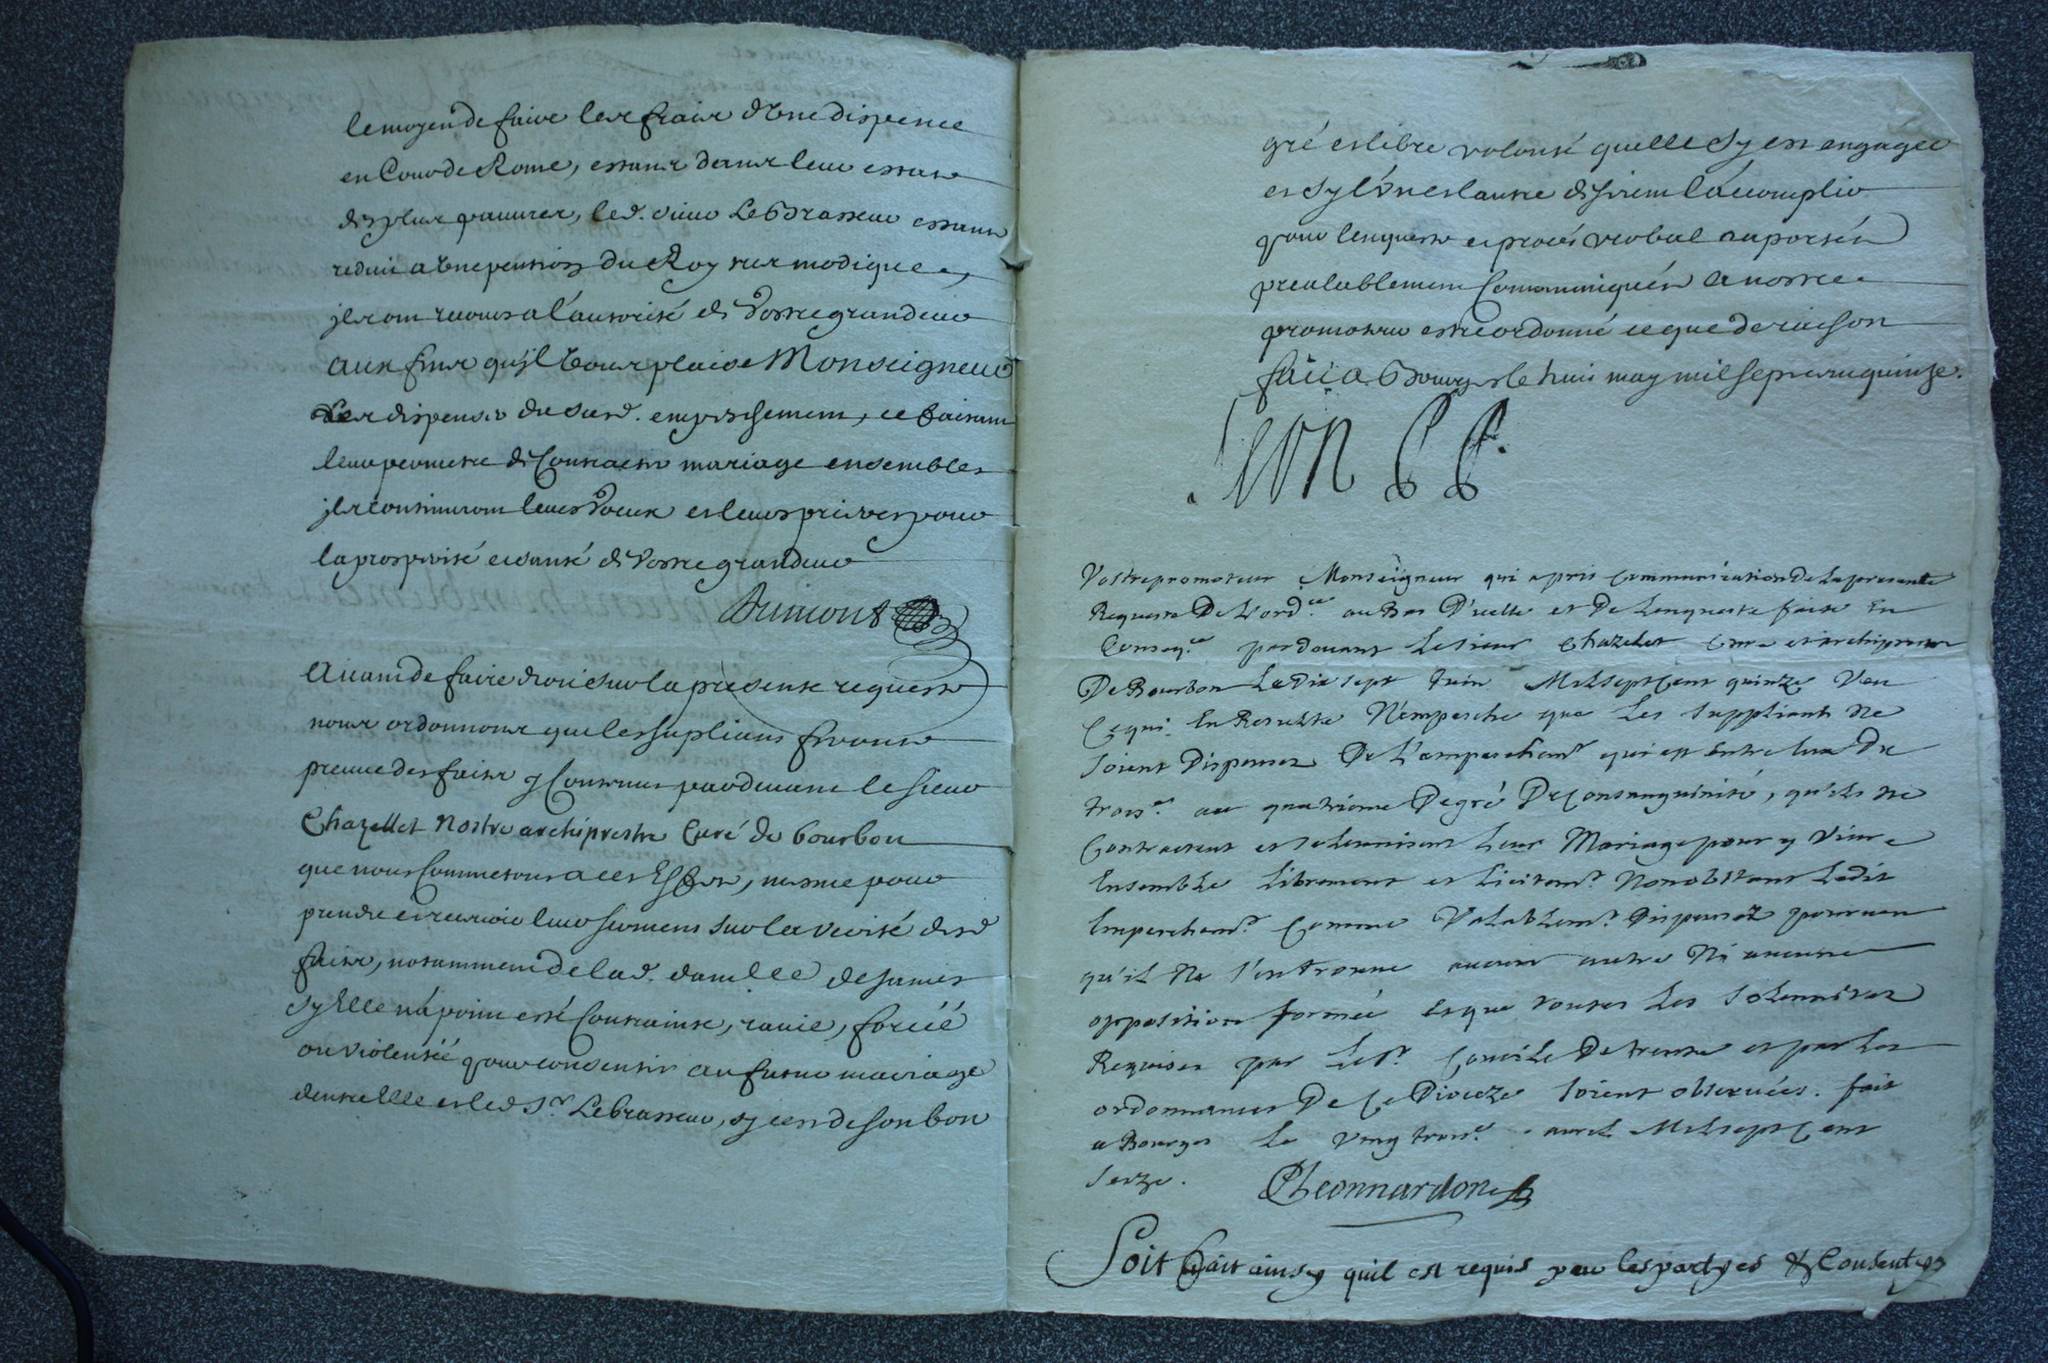 le moyen de faire les frais d'une dispence
en Cour de Rome, estans dans leur estat
des plus pauures, led. sieur Le Brasseur estant
reduit a une pension du Roy tres modique,
jls ont recours a l'autorité de Vostre grandeur
aux fins qu'jl Vous plaise Monseigneur
Les dispenser du susd. empeschement, ce faisant
leur permettre de Contracter mariage ensembles
jls continuront leurs Voeux et leurs prieres pour
la prosperité et santé de Vostre grandeur
Dumont
Auant de faire droit sur la presente requeste
nous ordonnons que les suplians feront
preuue des faits y Contenus pardeuant le sieur
Chazellet Nostre archiprestre Curé de bourbon
que nous Commetons a ces Effets, mesme pour
prendre et receuoir leur serment sur la verité desd
faits, notamment de lad. damlle de Jamer
sy Elle n'a point esté Contrainte, rauie, forcéé
ou violentéé pour consentir au futur mariage
d'entre Elle et led Sr. Lebrasseur, sy c'est de son bon
gré et libre volonté quelle s'y est engagée
et sy l'vn et l'autre desirent l'acomplir
pour l'enqueste et procés verbal raportés
prealablement Communiqués a nostre
promoteur estre ordonné ce que de raison
fait a Bourges le huit may mil sept cent quinze.
Vostre promoteur Monseigneur qui apris Communication De La presente
Requeste De L'ord.ce au Bas D'icelle et De Lenqueste faite En
Conseq.ce pardouant Le sieur Chazelet Cure et archiprestre
De Bourbon Le Dix sept Juin Mil sept Cent quinze Veu
Ce qui En Resulte N'empesche que Les Suppliants Ne
soient Dispenses De L'empeschem.t qui est Entre Eux Du
trois.e au quatrieme Degré De Consanguinité, qu'ils Ne
Contractent et solennisent Leur Mariage pour y Viure
Ensemble Librement et Licitem.t Nonobstant Ledit
Empeschem.t Comme Valablem.t Dispensez pourueu
qu'il Ne s'en trouue aucun autre Ni aucune
opposition formée Et que toutes Les solennitez
Requises par Le St. Concile De trente et par Les
ordonnances De Ce Dioceze soient obseruées. fait
a Bourges Le Vingt trois.e auril Mil sept Cent
seize.
Leonnardon
Soit fait ainsy quil est requis par les partyes & Consenty